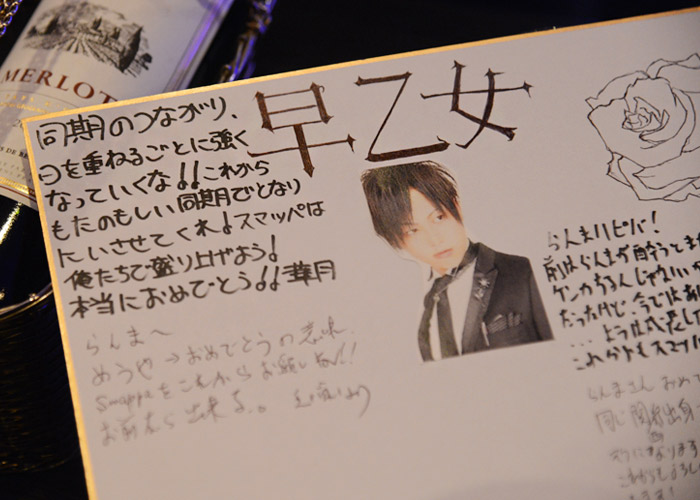 MERLOT
早乙女
同期のつながり、
日を重ねるごとに強く
なっていくな!!これから
もたのもしい同期でとなり
にいさせてくれ!スマッペは
俺たちで盛り上げよう!
本当におめでとう!!華月
らんまへ
めうや→おめでとうの意味
Smappaをこれからお願いね!!
お前なら出来る。
らんまハピバ!
前はらんまが酔うとまた
ケンカするんじゃないか
だったけど、今では
これからもスマッ
らんまさん おめで
同じ関西出身
これからもよろし